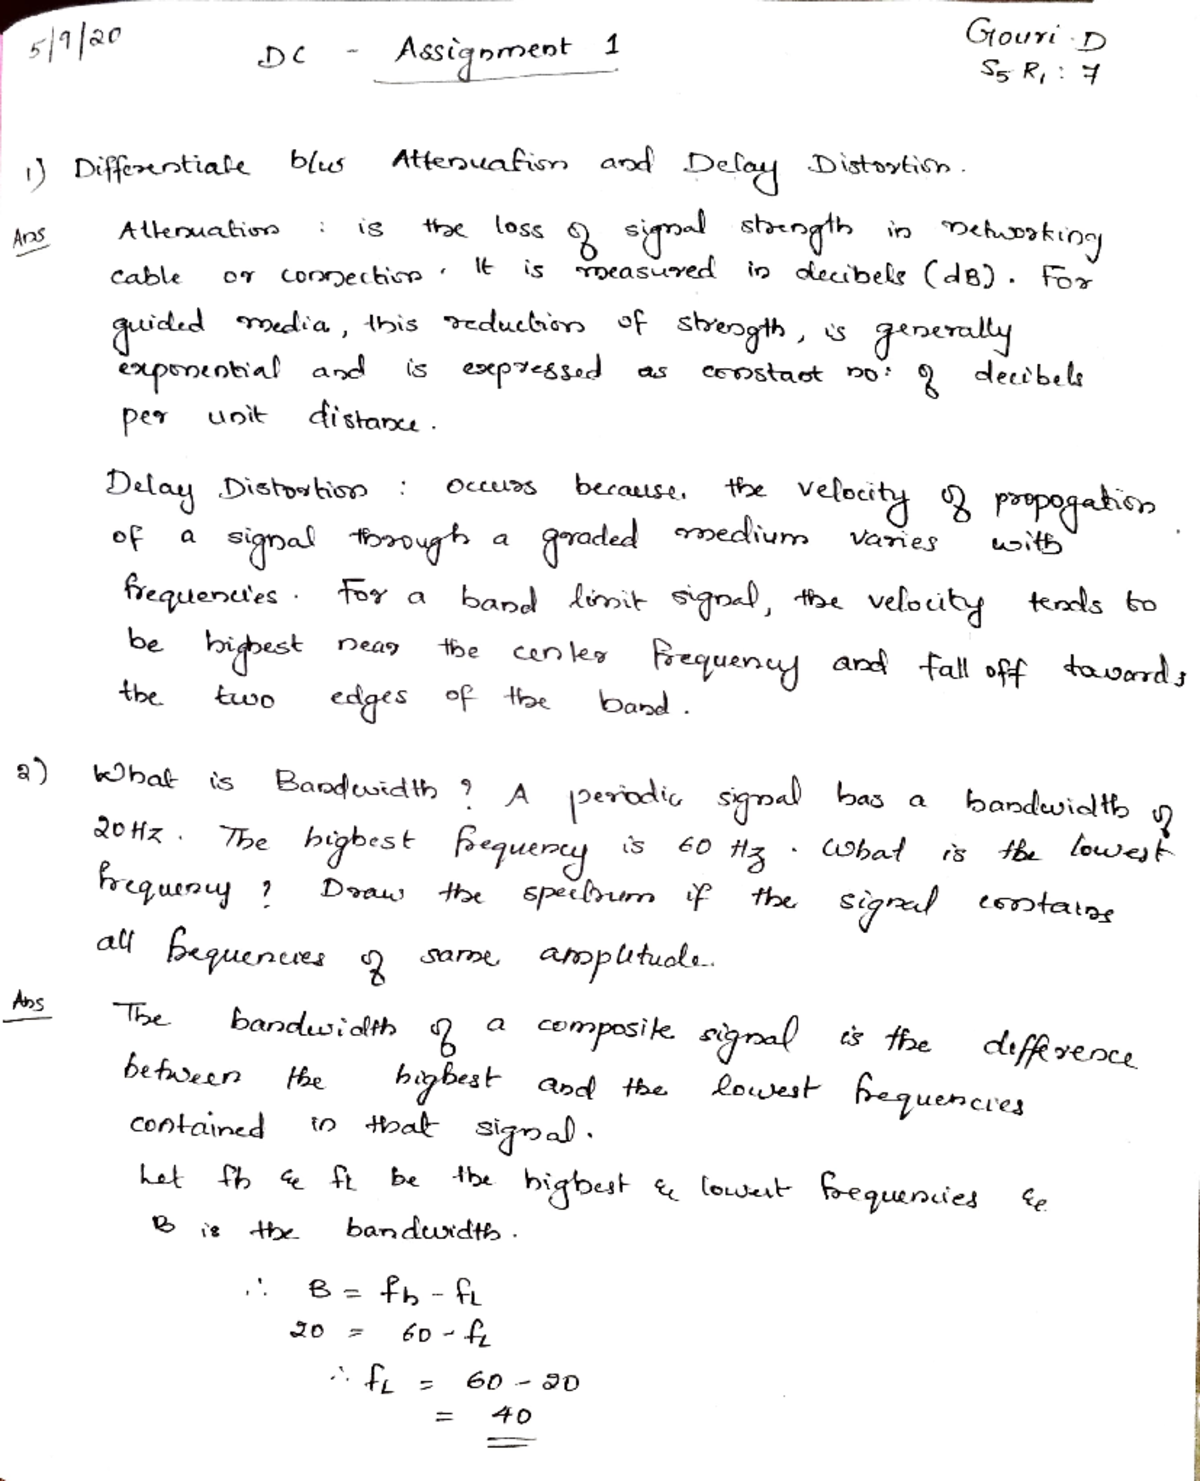 5/9/20
DC - Assignment 1
Gouri . D
S5 R1 : 7
1) Differentiate b/w Attenuation and Delay Distortion.
Ans Attenuation : is the loss of signal strength in networking
cable or connection. It is measured in decibels (dB). For
guided media, this reduction of strength, is generally
exponential and is expressed as constant no: of decibels
per unit distance.
Delay Distortion : occurs because, the velocity of propogation
of a signal through a graded medium varies with
frequencies. For a band limit signal, the velocity tends to
be highest near the center frequency and fall off towards
the two edges of the band.
2) What is Bandwidth ? A periodic signal has a bandwidth of
20 Hz. The highest frequency is 60 Hz. What is the lowest
frequency ? Draw the spectrum if the signal contains
all frequencies of same amplitude.
Ans The bandwidth of a composite signal is the difference
between the highest and the lowest frequencies
contained in that signal.
Let fh & fL be the highest & lowest frequencies &
B is the bandwidth.
∴ B = fh - fL
20 = 60 - fL
∴ fL = 60 - 20
= 40